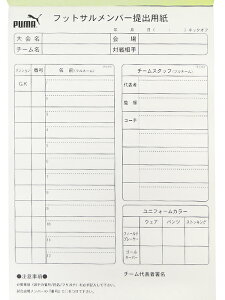 PUMA
フットサルメンバー提出用紙
年 月 日 ( ) キックオフ
大会名
会場
チーム名
対戦相手
ポジション 番号 名前(フルネーム)
GK
1
2
3
4
5
6
7
8
9
10
11
12
チームスタッフ(フルネーム)
代表者
監督
コーチ
ユニフォームカラー
ウェア パンツ ストッキング
フィールドプレーヤー
ゴールキーパー
●注意事項●
チーム代表者署名